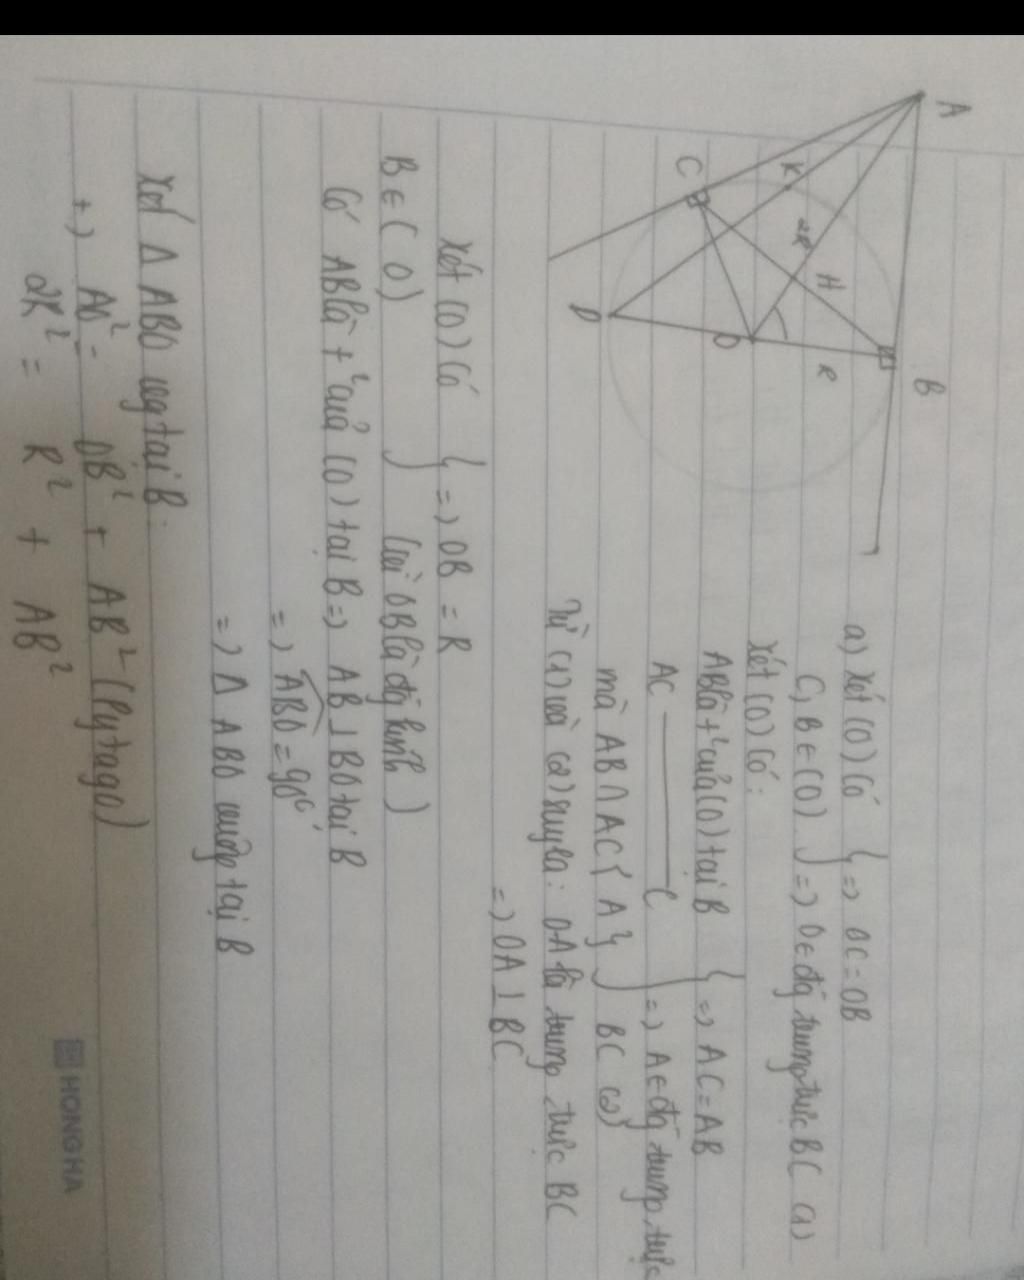 A
B
C
K
2R
H
R
O
D
a) Xét (O) có
C, B ∈ (O) } => OC = OB
=> O ∈ đg trung trực BC (1)
Xét (O) có:
AB là t² của (O) tại B
AC ——— C } => AC = AB
mà AB ∩ AC { A } => A ∈ đg trung trực BC (2)
Từ (1) và (2) suy ra: OA là trung trực BC
=> OA ⊥ BC
Xét (O) có
B ∈ (O) } => OB = R
(vì OB là đg kính)
Có AB là t² của (O) tại B => AB ⊥ BO tại B
=> ABO = 90°
=> Δ ABO vuông tại B
Xét Δ ABO vg tại B:
+) AO² = OB² + AB² (Pytago)
2R² = R² + AB²
HONG HA